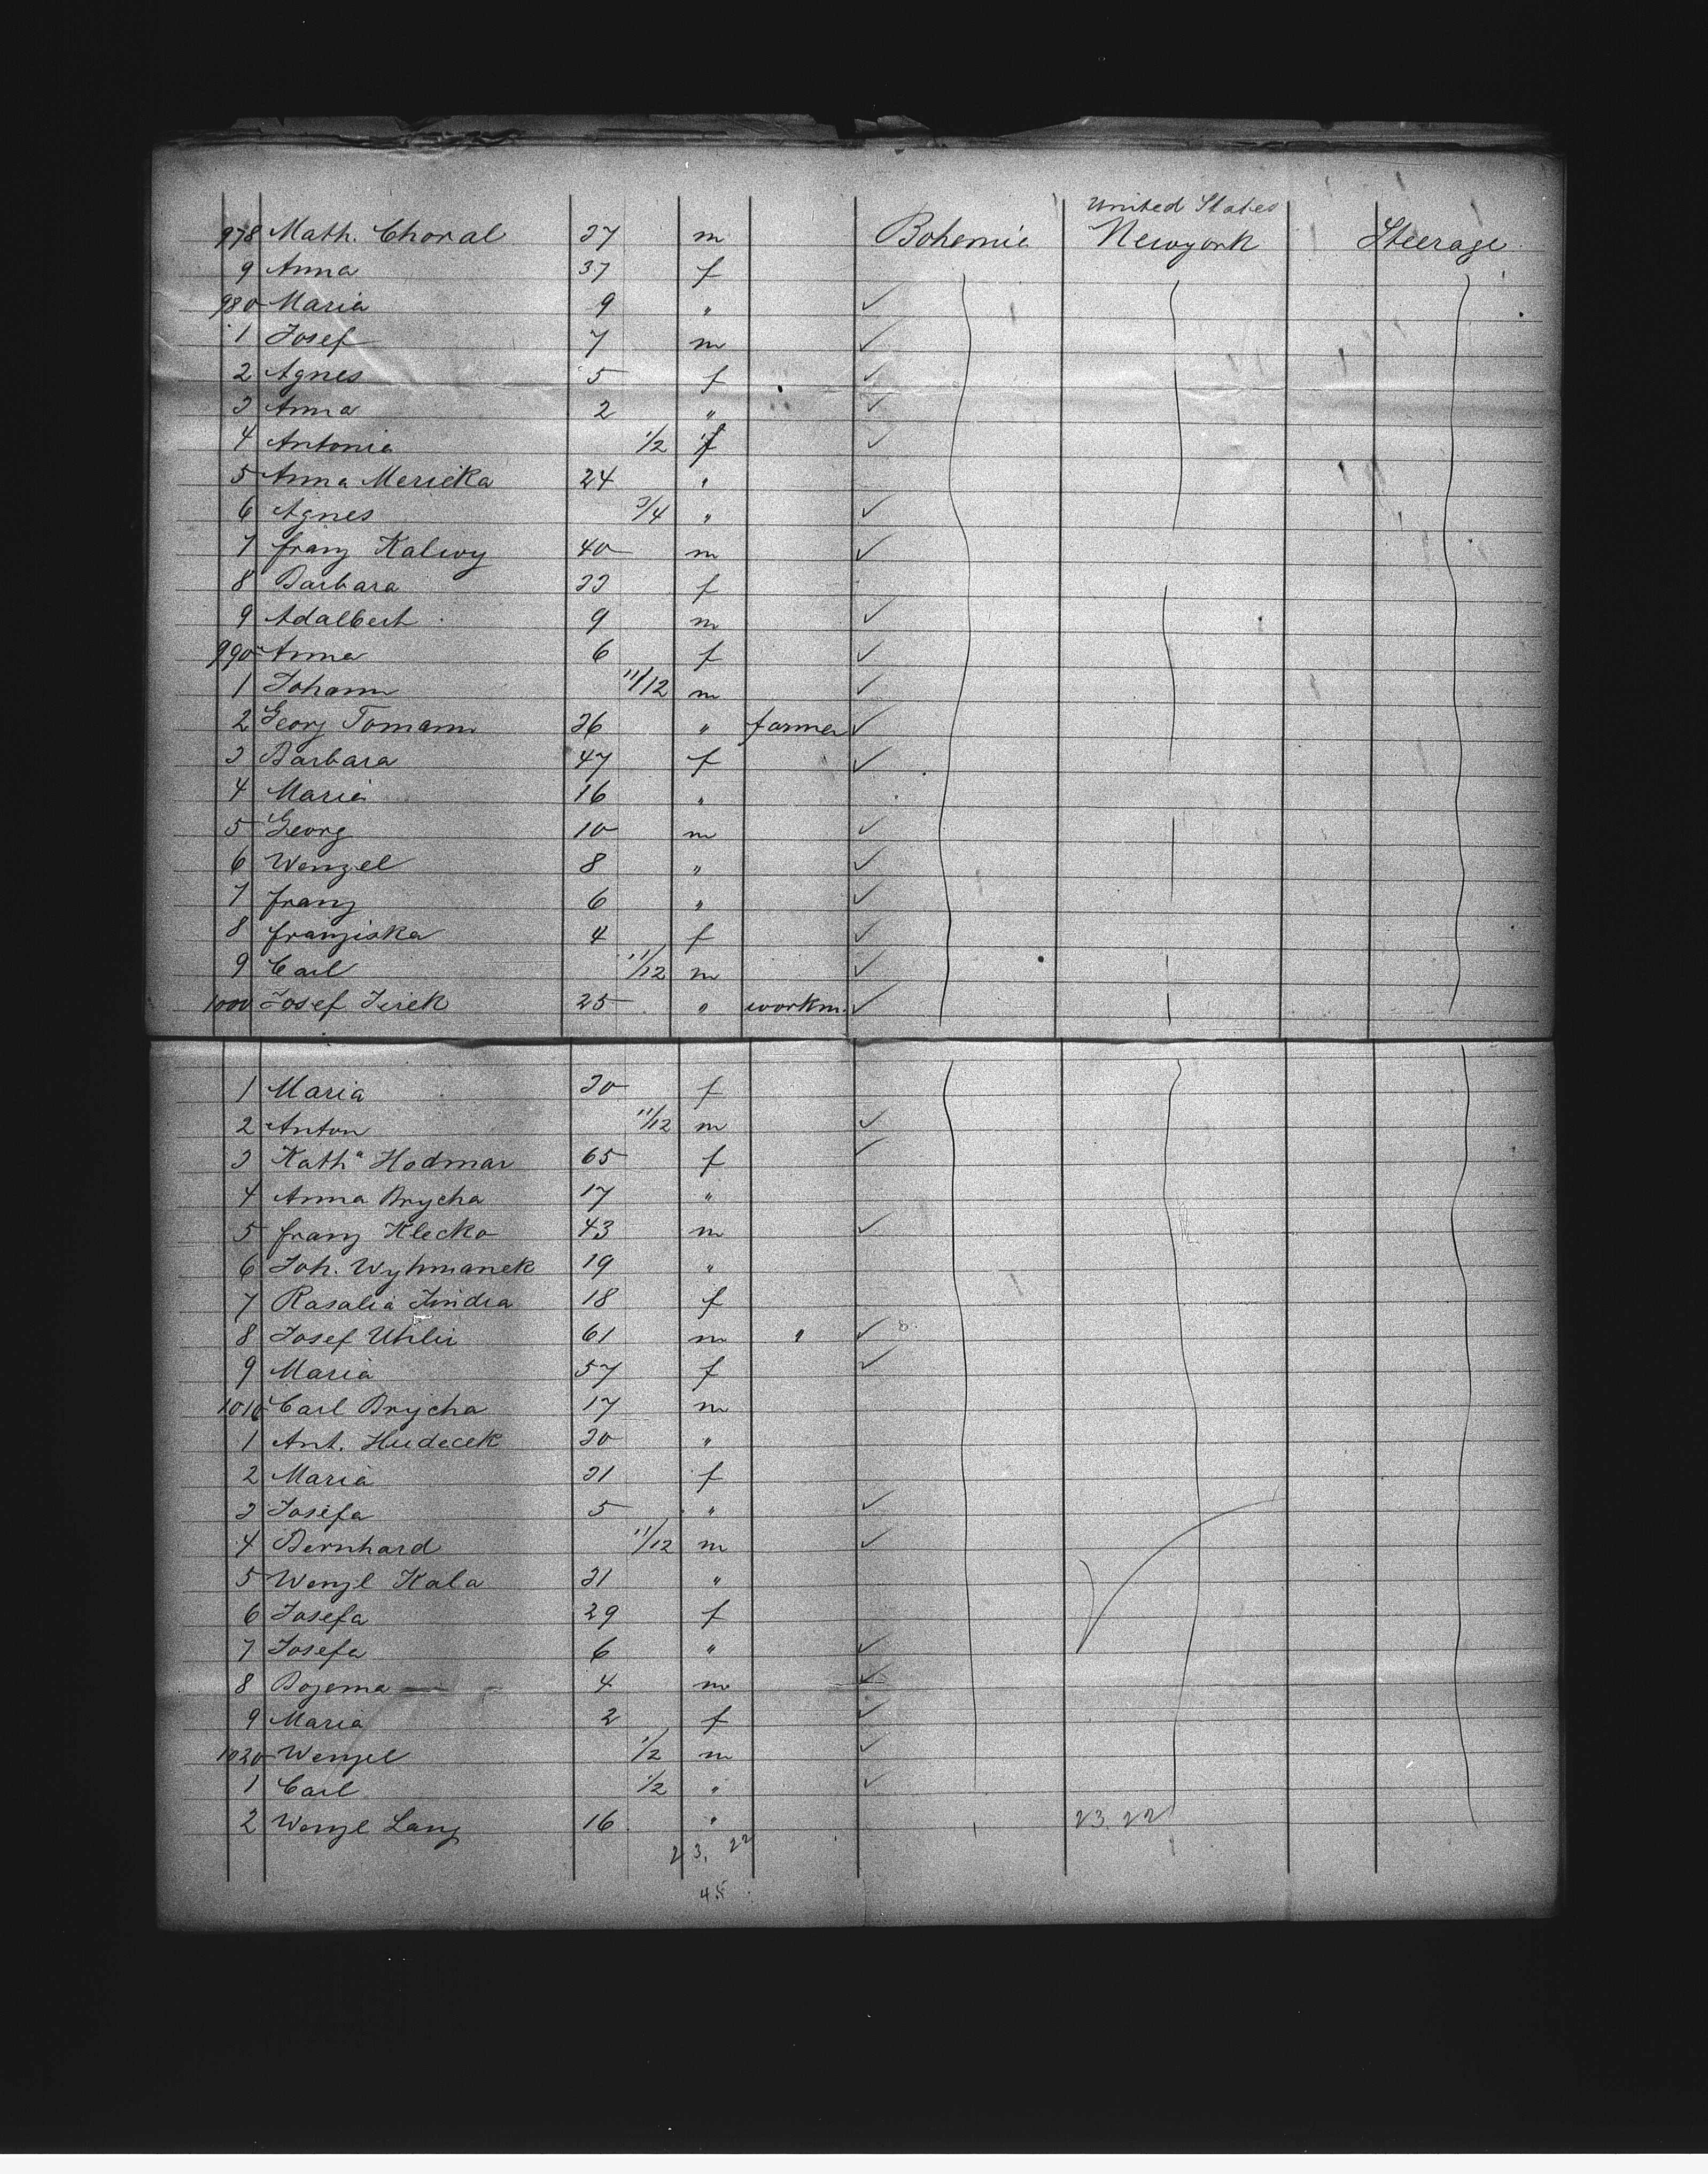 United States
978 Math. Choral 37 m Bohemia Newyork Steerage
9 Anna 37 f
980 Maria 9 "
1 Josef 7 m
2 Agnes 5 f
3 Anna 2 "
4 Antonia 1/2 f
5 Anna Mericka 24 "
6 Agnes 3/4 "
7 Franz Kalivy 40 m
8 Barbara 33 f
9 Adalbert 9 m
990 Anna 6 f
1 Johann 11/12 m
2 Georg Tomann 36 " farmer
3 Barbara 47 f
4 Maria 16 "
5 Georg 10 m
6 Wenzel 8 "
7 Franz 6 "
8 Franziska 4 f
9 Carl 11/12 m
1000 Josef Jirek 25 " workm.
1 Maria 30 f
2 Anton 11/12 m
3 Kath^a Hodmar 65 f
4 Anna Brycha 17 "
5 Franz Klecka 43 m
6 Joh. Wyhnanek 19 "
7 Rasalia Jindra 18 f
8 Josef Uhlir 61 m "
9 Maria 57 f
1010 Carl Brycha 17 m
1 Ant. Hudecek 30 "
2 Maria 31 f
3 Josefa 5 "
4 Bernhard 11/12 m
5 Wenzl Kala 31 "
6 Josefa 29 f
7 Josefa 6 "
8 Bozema 4 m
9 Maria 2 f
1020 Wenzel 1/2 m
1 Carl 1/2 "
2 Wenzl Lang 16 " 23. 22
23. 22
45